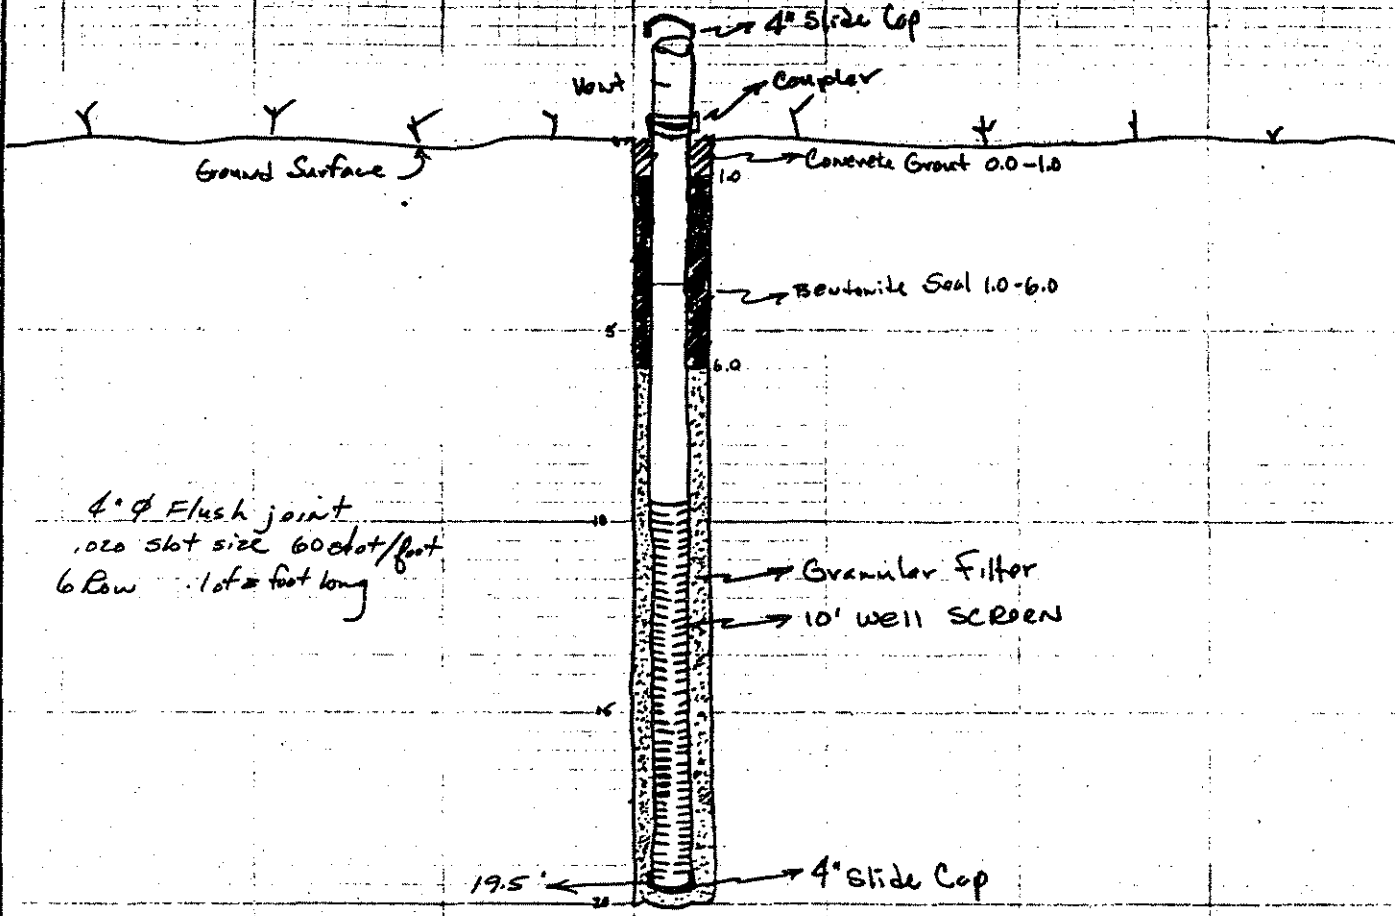 4" Slide Cap
Vent
Coupler
0
Ground Surface
Concrete Grout 0.0-1.0
1.0
Bentonite Seal 1.0-6.0
5
6.0
4" Ø Flush joint
10
.020 slot size 60 slot/foot
6 Row foot long
Granular Filter
10' WELL SCREEN
15
19.5'
4" Slide Cap
20